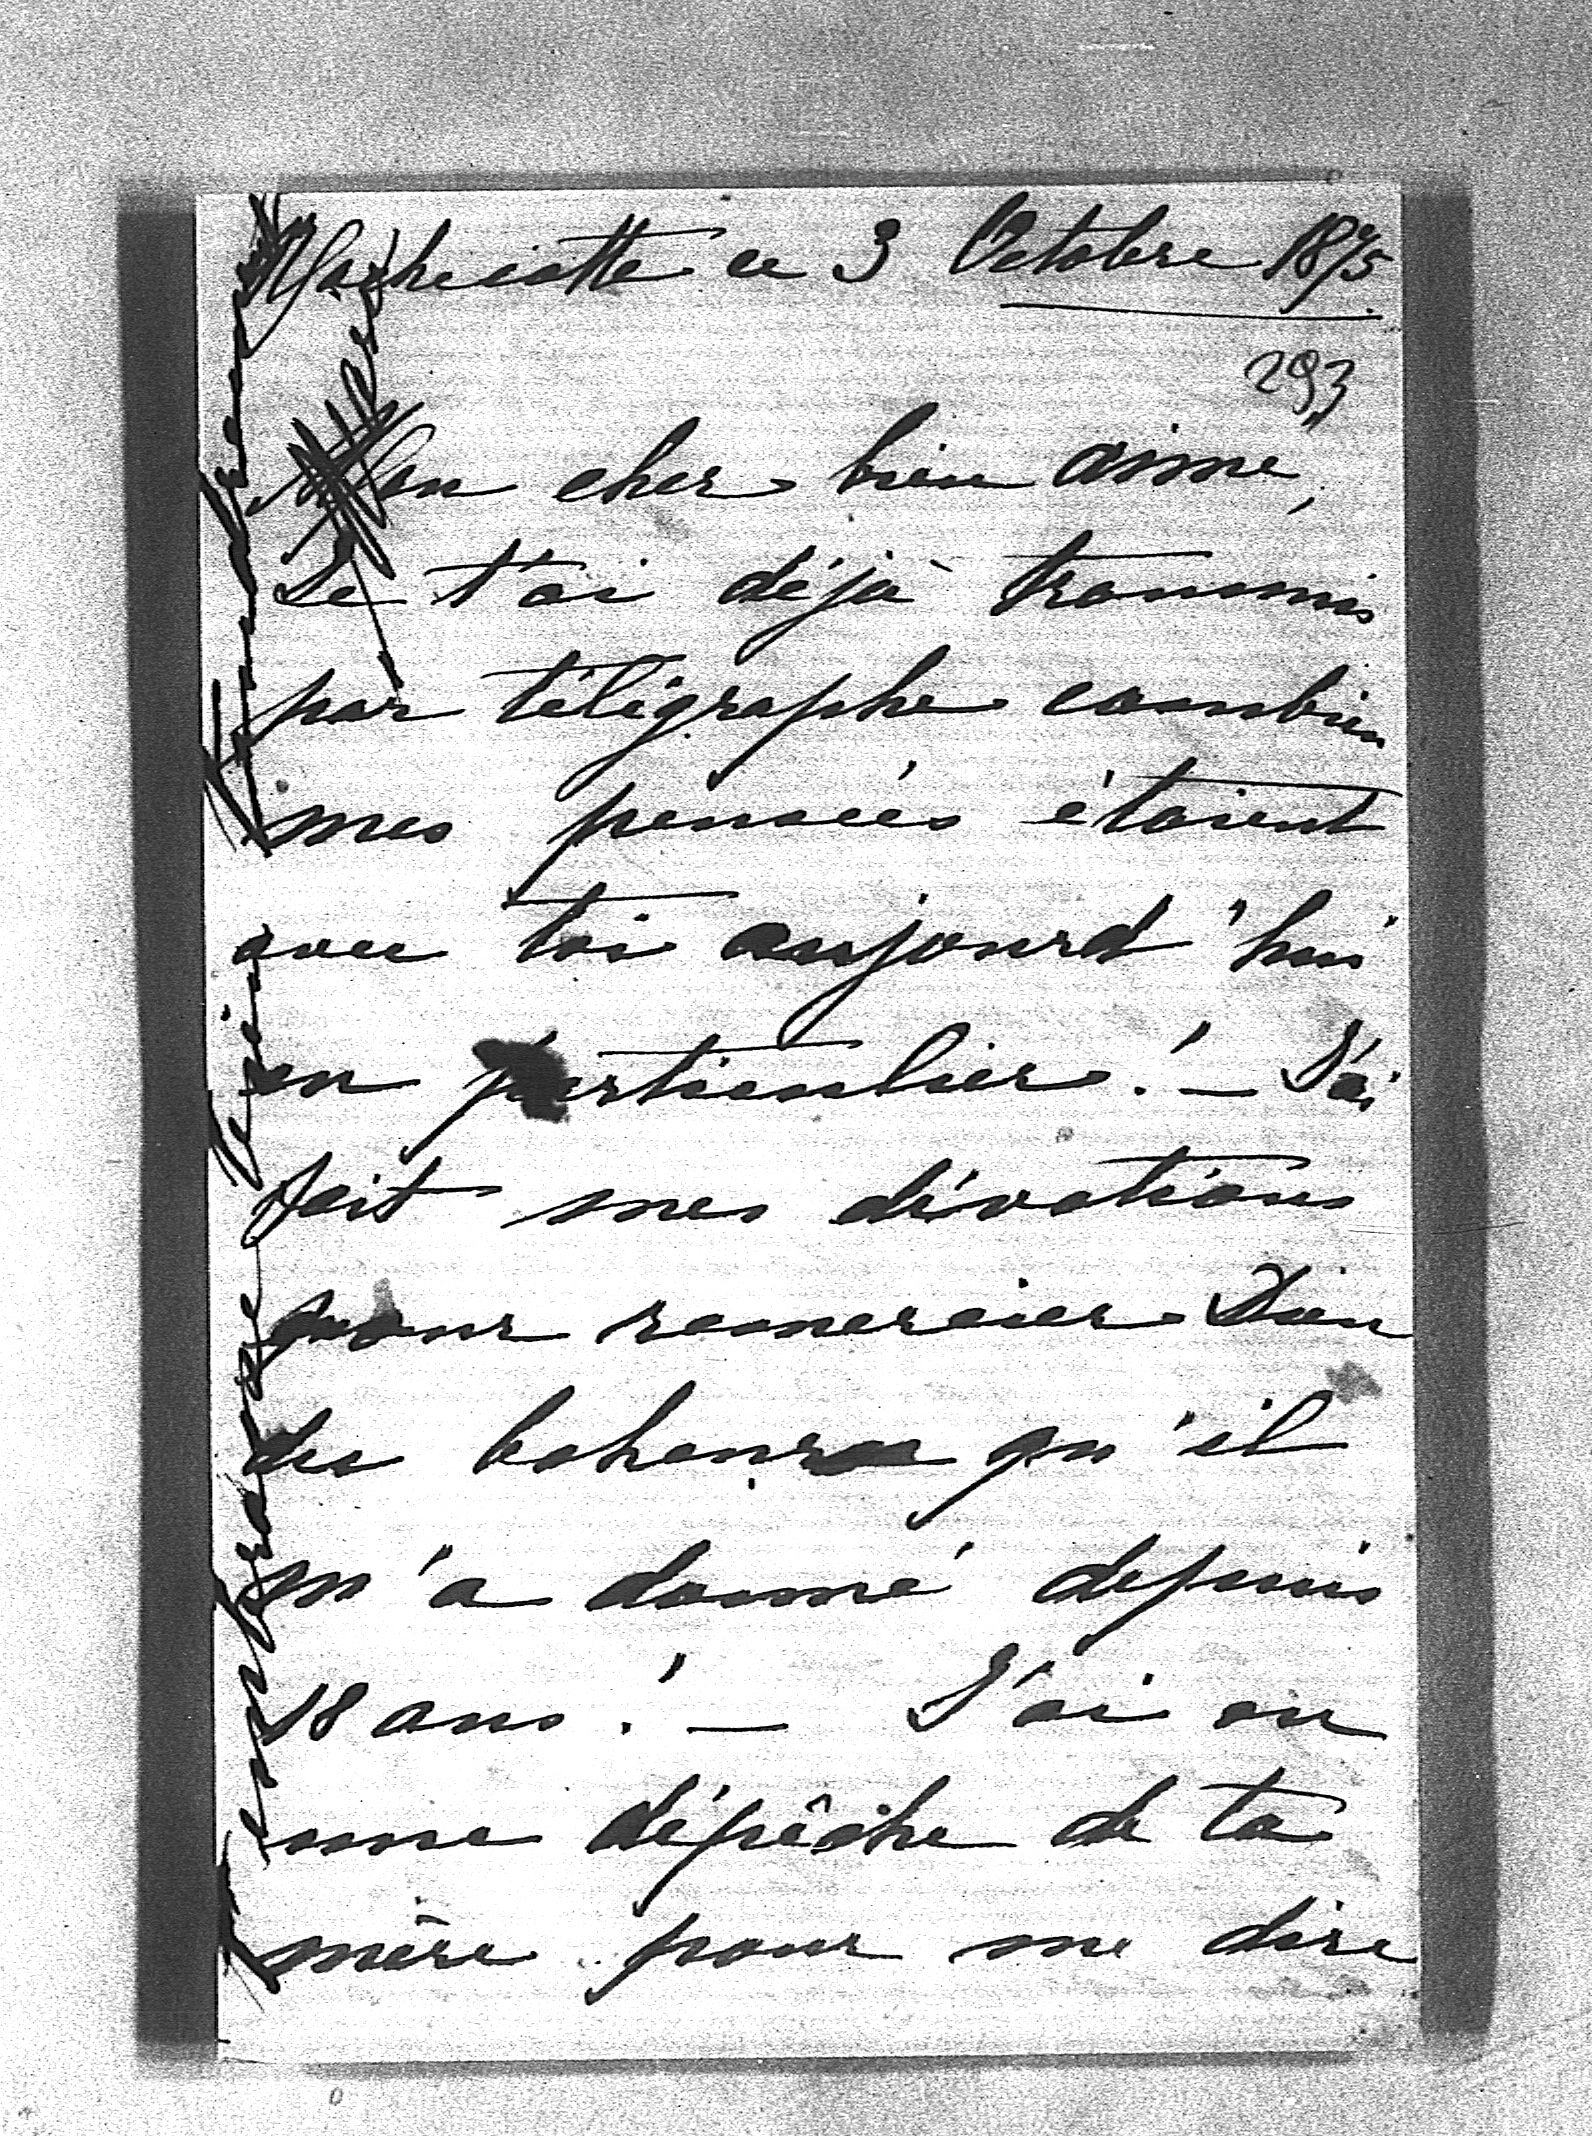 ce 3 Octobre 1875
293
Mon cher bien aimé,
Je t'ai déjà transmis
par télégraphe combien
mes pensées étaient
avec toi aujourd'hui
en particulier! — J'ai
fait mes dévotions
pour remercier Dieu
des boheurs qu'il
m'a donné depuis
18 ans! — J'ai eu
une dépêche de ta
mère pour me dire